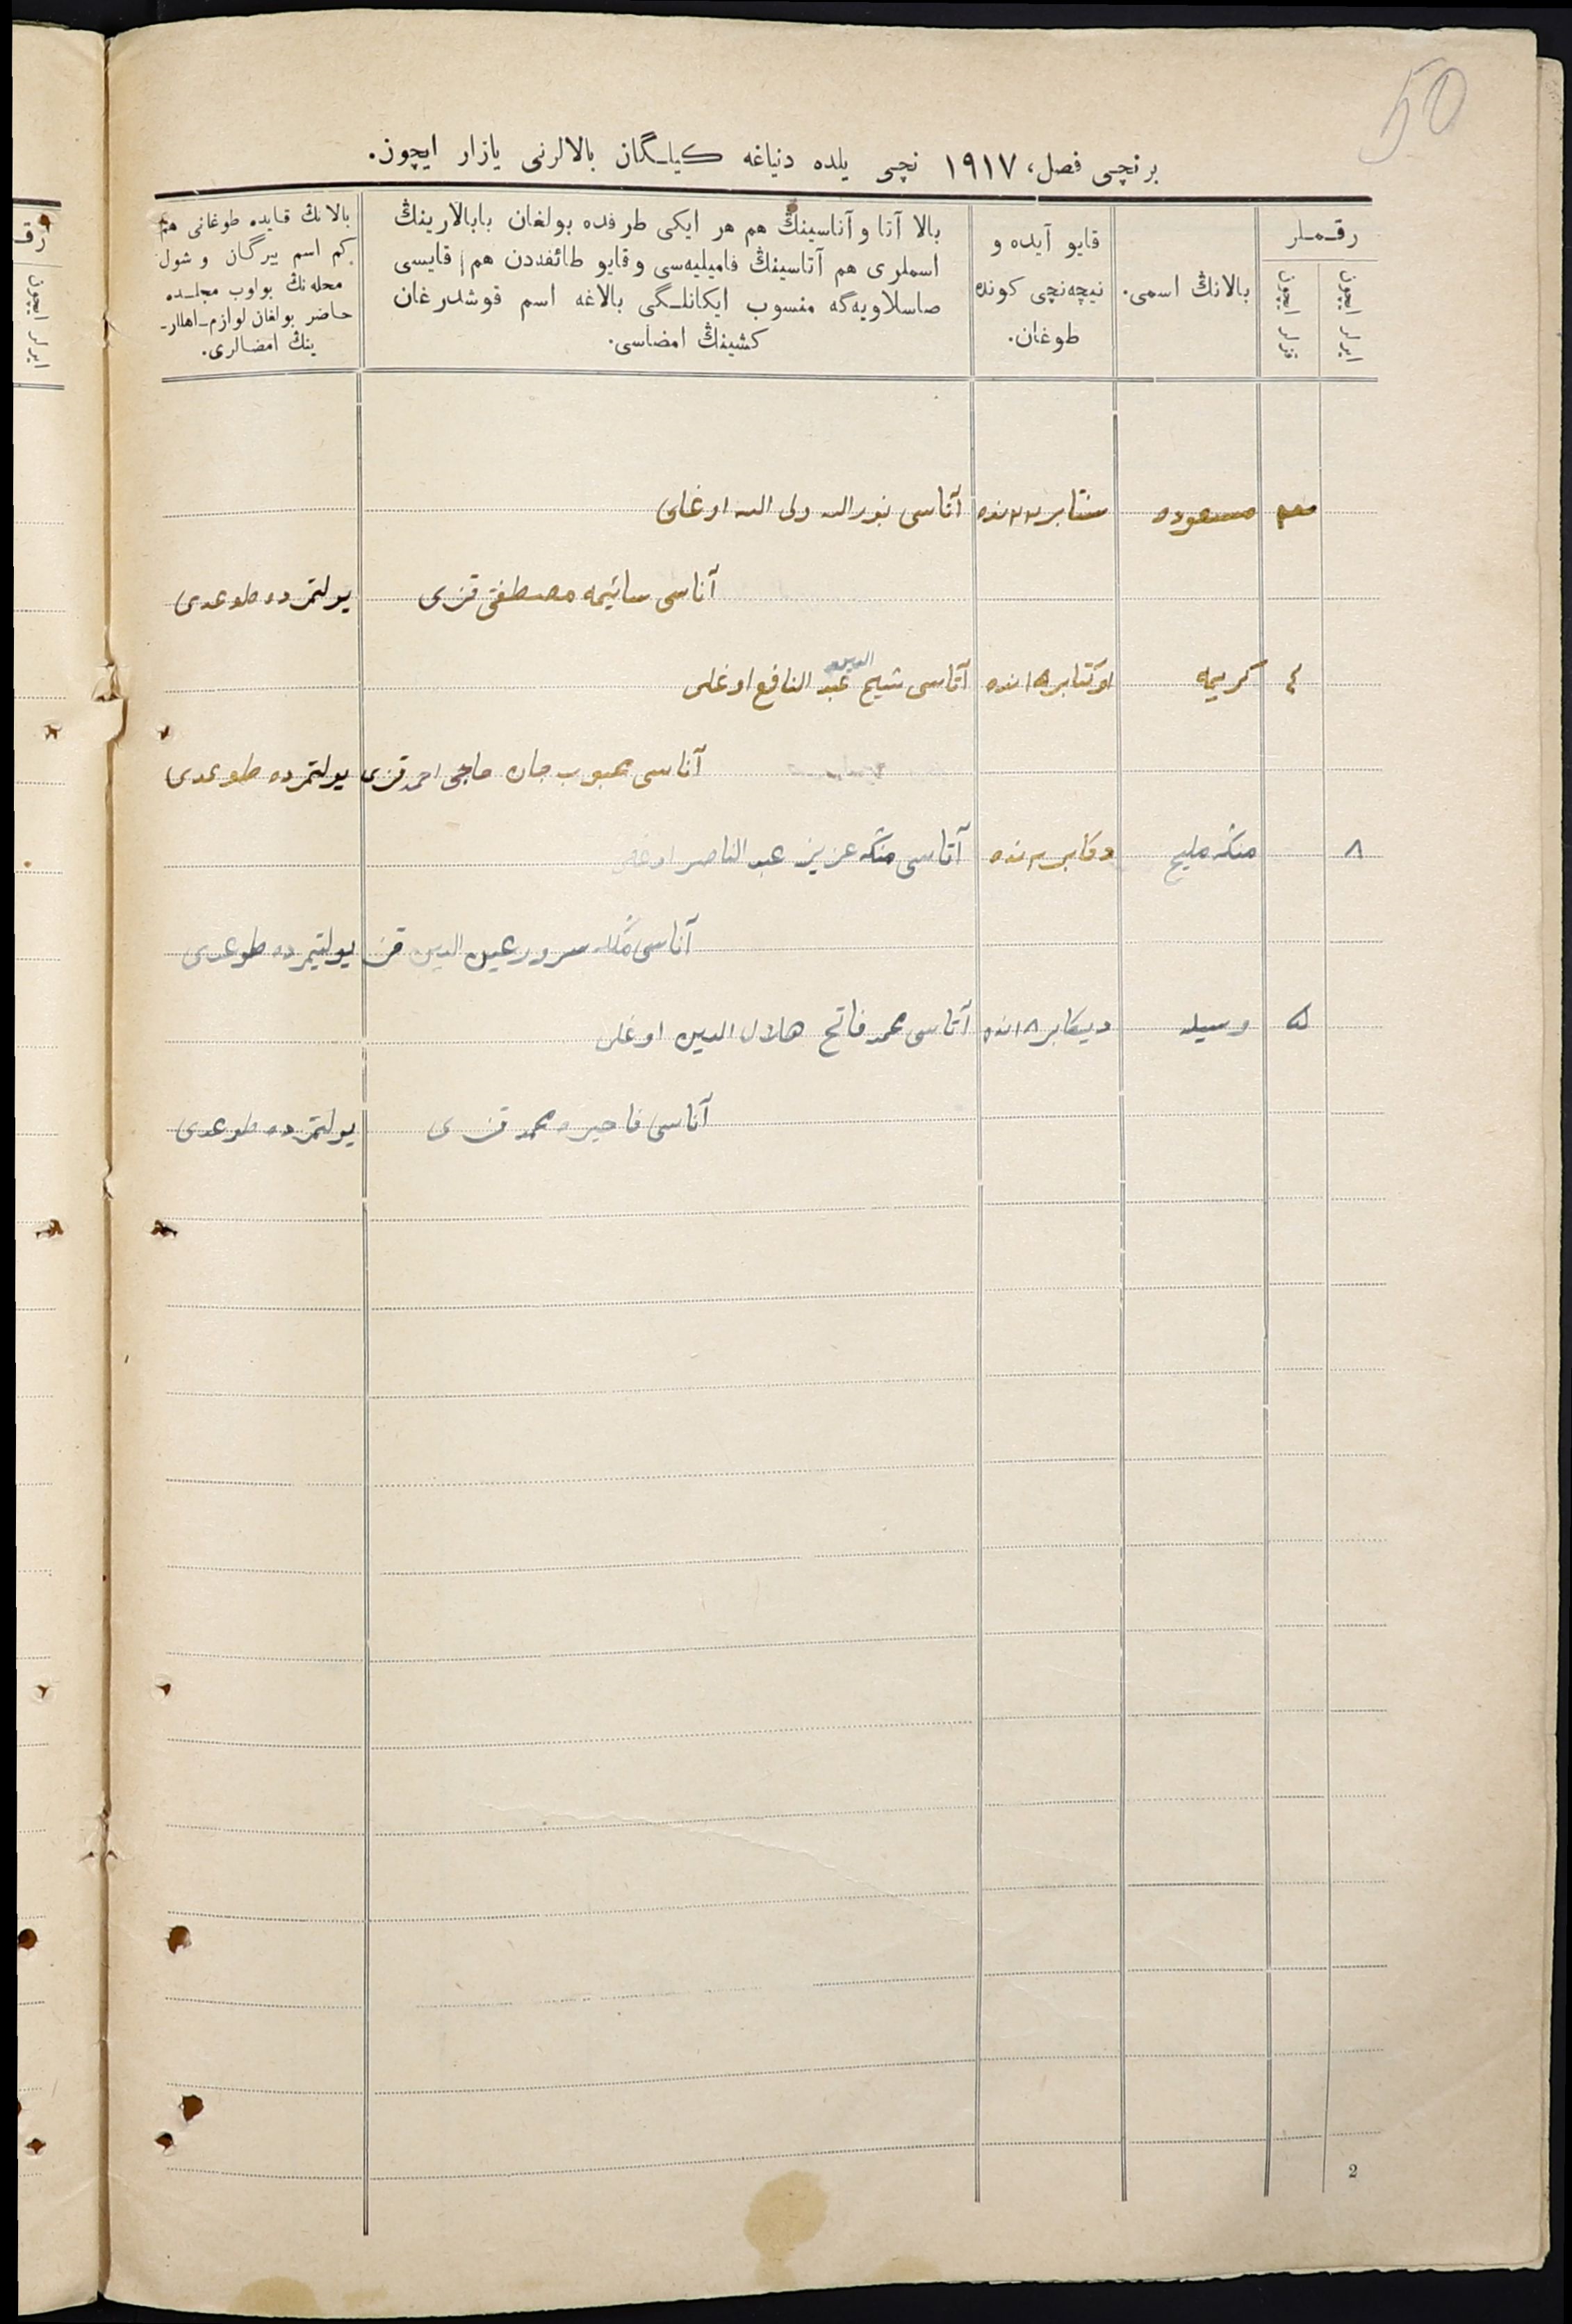 50
برنچی فصل، ١٩١٧ نچی یلده دنیاغه کیلگان بالالرنی یازار ایچون.
رقملر
ایرلر ایچون
قزلر ایچون
بالانڭ اسمی.
قایو آیده و
نیچه‌نچی کونده
طوغان.
بالا آتا و آناسینڭ هم هر ایکی طرفده بولغان بابالارینڭ
اسملری هم آتاسینڭ فامیلیه‌سی و قایو طائفه‌دن هم قایسی
صاسلاویه‌گه منسوب ایکانلگی بالاغه اسم قوشدرغان
کشینڭ امضاسی.
بالانڭ قایده طوغانی هم
کم اسم بیرگان و شول
محله‌نڭ بولوب مجلسده
حاضر بولغان لوازم اهللر-
ینڭ امضالری.
٣ مسعوده سنتابر ٢٢ نده آتاسی نورالله ولی الله اوغلی
آناسی سائیمه مصطفی قزی یولتمرده طوغدی
٤ کریمه اوکتابر ١٥ نده آتاسی شیخ الدین عبد النافع اوغلی
آناسی محبوب جان حاجی احمد قزی یولتمرده طوغدی
٨ منڭه ملیح دکابر ٢ نده آتاسی منڭه عزیز عبد الناصر اوغلی
آناسی سرور عین الدین قز یولتیمرده طوغدی
٥ وسیله دیکابر ١٨ نده آتاسی محمد فاتح هلال الدین اوغلی
آناسی فاخیره محمد قزی یولتمرده طوغدی
2
رق
ایرلر ایچون